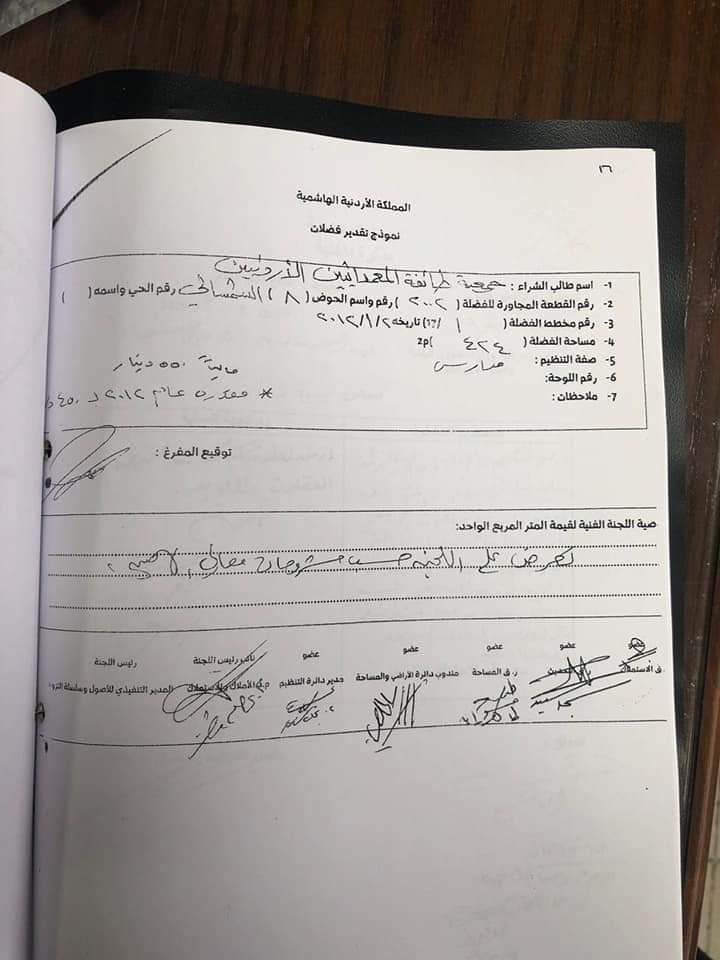 ٢٦
المملكة الأردنية الهاشمية
نموذج تقدير فضلات
1- اسم طالب الشراء : جمعية طائفة المعمدانيين الأردنيين
2- رقم القطعة المجاورة للفضلة ( ٢٠٠٢ ) رقم واسم الحوض ( ٨ ) الشمساني رقم الحي واسمه ( )
3- رقم مخطط الفضلة ( ١ /17) تاريخه ٢٠١٢/١/٢
4- مساحة الفضلة ( ٤٢٤ )م2
5- صفة التنظيم : مدارس
6- رقم اللوحة:
7- ملاحظات :
٥٥٠ دينار
* مقدره عام ٢٠١٢ لـ ٤٥٠
توقيع المفرغ :
صية اللجنة الفنية لقيمة المتر المربع الواحد:
تعرض على اللجنة حسب مشروحات
عضو عضو عضو عضو عضو نائب رئيس اللجنة رئيس اللجنة
ر.ق الاستملاك ر. ق المساحة مندوب دائرة الأراضي والمساحة مدير دائرة التنظيم م.د الأملاك والاستملاك المدير التنفيذي للأصول وسلسلة التزو